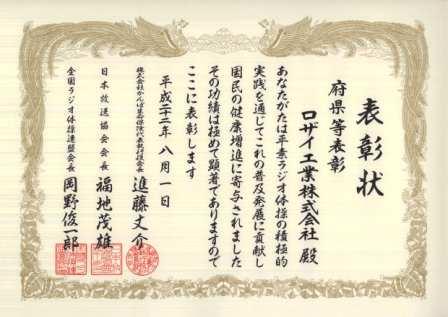 表彰状
府県等表彰
ロザイ工業株式会社 殿
あなたがたは平素ラジオ体操の積極的
実践を通じてこれの普及発展に貢献し
国民の健康増進に寄与されました
その功績は極めて顕著でありますので
ここに表彰します
平成二十二年 八月 一日
株式会社かんぽ生命保険代表執行役会長 進藤丈介
日本放送協会会長 福地茂雄
全国ラジオ体操連盟会長 岡野俊一郎